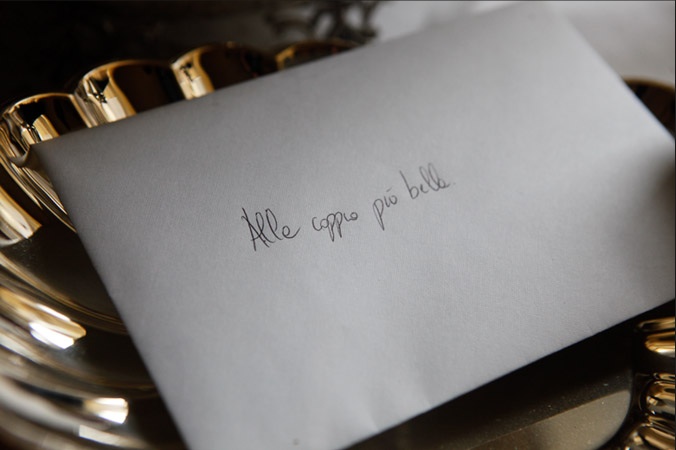 Alla coppia più bella